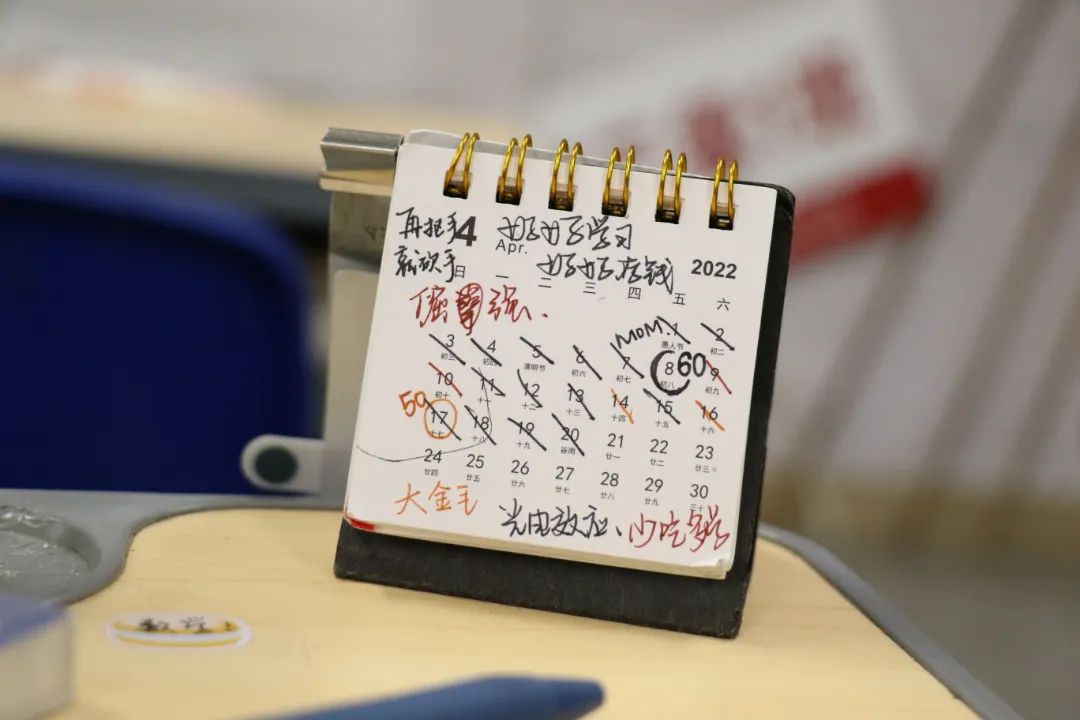 再把手 4 好好学习
就砍手 Apr. 好好存钱 2022
日 一 二 三 四 五 六
倔 强.
MOM. 1 2
愚人节 初二
3 4 5 6 7 8 60 9
初三 初四 清明节 初六 初七 初八 初九
10 11 12 13 14 15 16
初十 十一 十二 十三 十四 十五 十六
50 17 18 19 20 21 22 23
十七 十八 十九 谷雨 廿一 廿二 廿三
24 25 26 27 28 29 30
廿四 廿五 廿六 廿七 廿八 廿九 三十
大金毛 光电效应、少吃零食